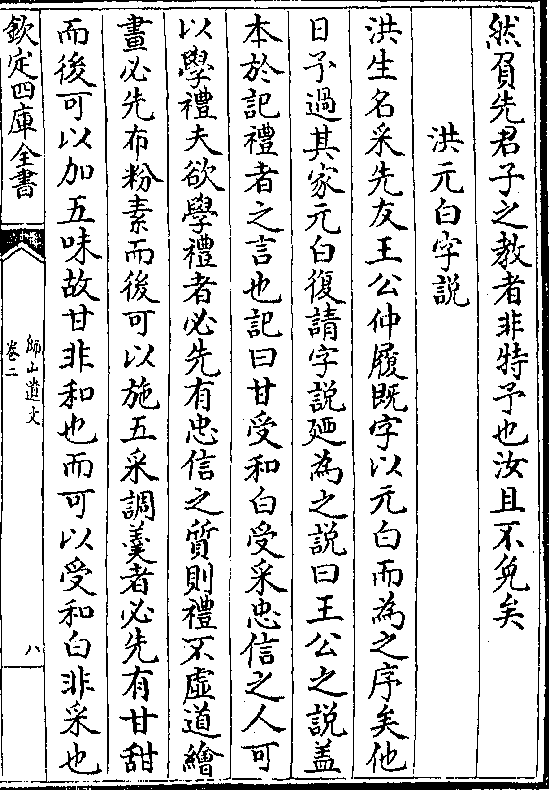 然負先君子之教者非特予也汝且不免矣
洪元白字説
洪生名采先友王公仲履既字以元白而為之序矣他
日予過其家元白復請字説廼為之説曰王公之説盖
本於記禮者之言也記曰甘受和白受采忠信之人可
以學禮夫欲學禮者必先有忠信之質則禮不虛道繪
畫必先布粉素而後可以施五采調羹者必先有甘甜
而後可以加五味故甘非和也而可以受和白非采也
欽定四庫全書
師山遺文
卷二
八